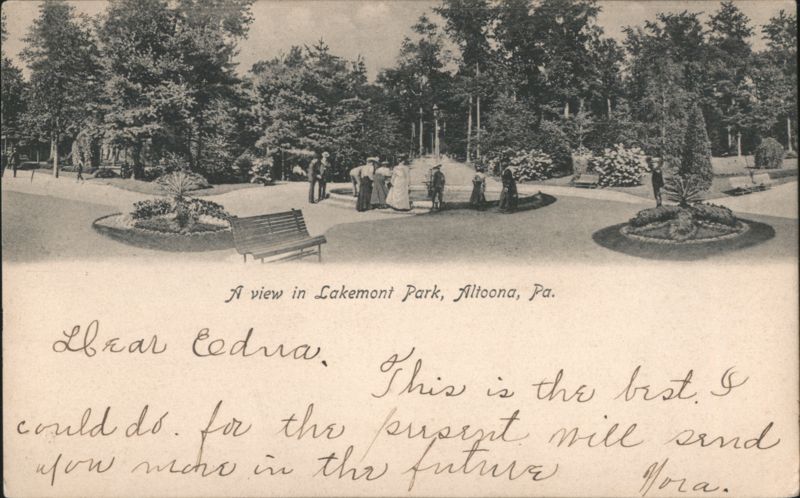 A view in Lakemont Park, Altoona, Pa.
Dear Edna.
This is the best. I
could do. for the present will send
you more in the future
Nora.